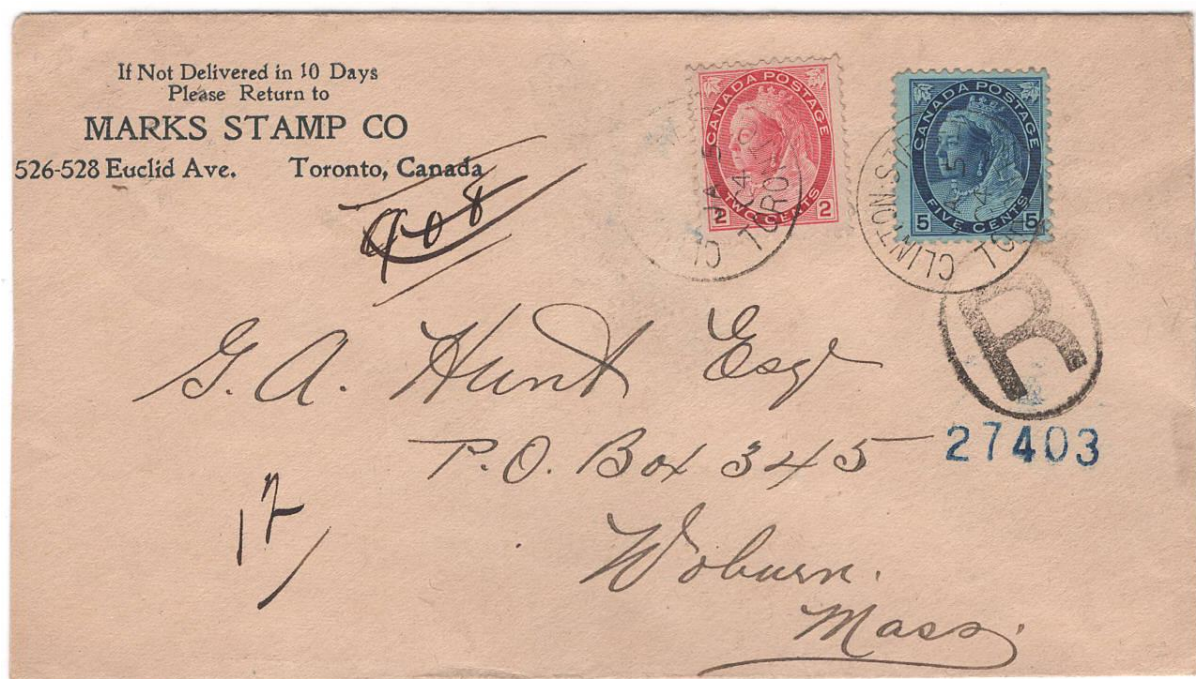 If Not Delivered in 10 Days
Please Return to
MARKS STAMP CO
526-528 Euclid Ave. Toronto, Canada
908
CANADA POSTAGE
2 TWO CENTS 2
CANADA POSTAGE
5 FIVE CENTS 5
JA 5
04
TORO
CLINTON ST
JA 5
04
TO
R
27403
G. A. Hunt Esqr
P.O. Box 345
Woburn.
Mass.
12